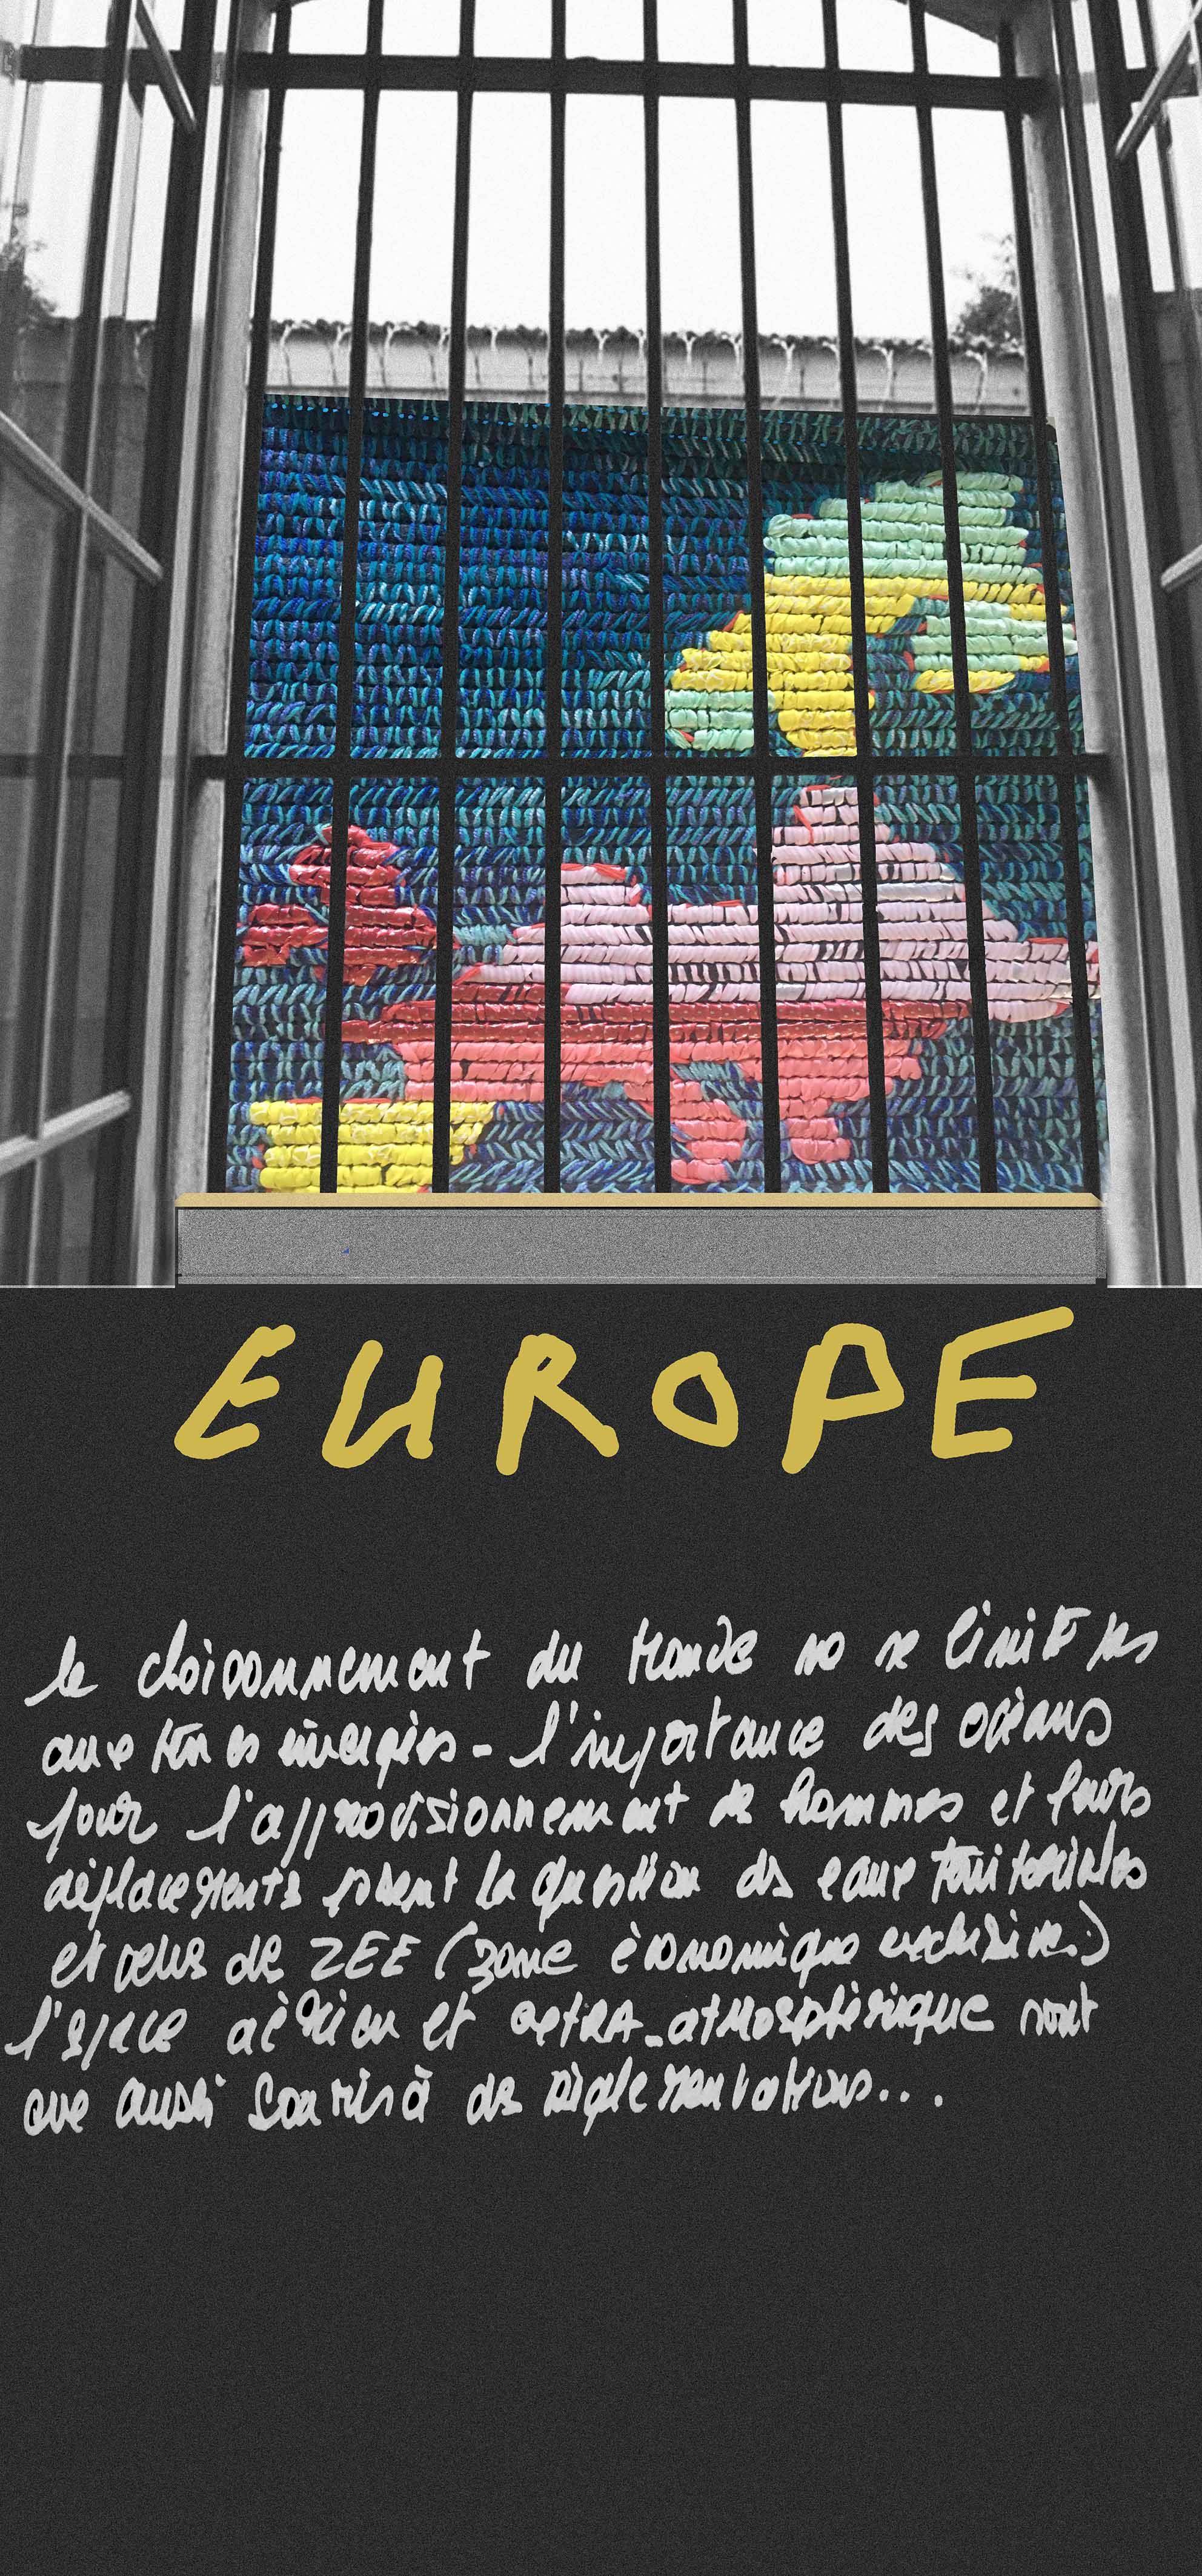 EUROPE
le cloisonnement du monde ne se limite pas
aux terres émergées - l'importance des océans
pour l'approvisionnement des hommes et leurs
déplacements posent la question des eaux territoriales
et celles de ZEE (zone économique exclusive)
l'espace aérien et extra-atmosphérique sont
eux aussi soumis à des règlementations...